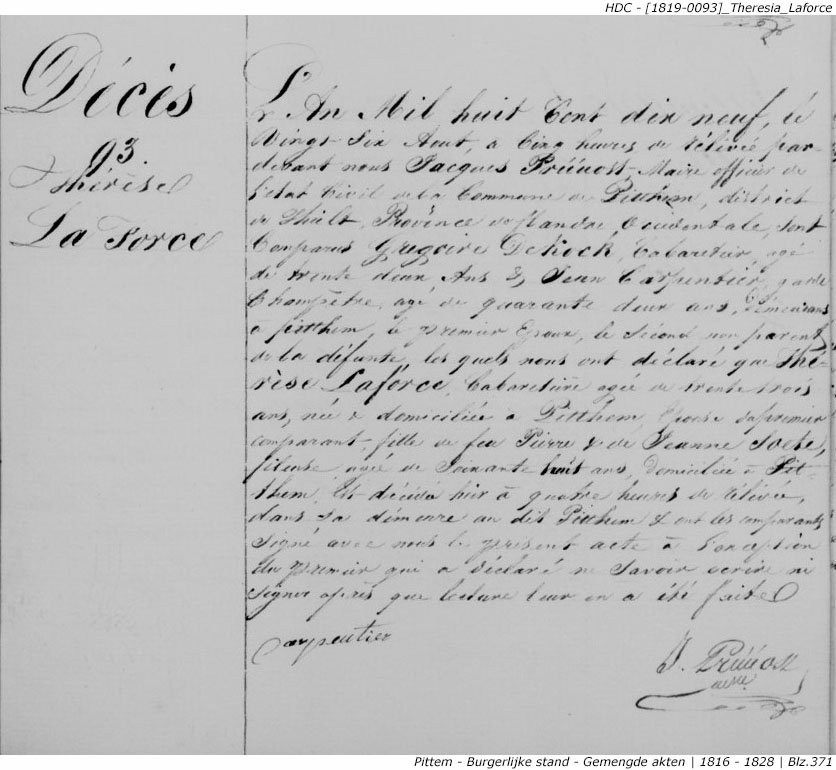 HDC - [1819-0093]_Theresia_Laforce
Décès
93.
Thérèse
La Force
L'An Mil huit Cent dix neuf, le
Vingt Six Aout, à Cinq heures de relévée par-
devant nous Jacques Prévost, Maire officier de
l'état Civil de la Commune de Pitthem, district
de Thielt, Province de flandre Occidentale, sont
Comparus Grégoire DeKock, Cabaretier, agé
de trente deux Ans & Jean Carpentier, garde
Champêtre, agé de quarante deux ans, démeurans
à pitthem, le premier Epoux, le Second non parent
de la défunte, les quels nous ont déclaré que Thé-
rèse Laforce, Cabaretière agée de trente trois
ans, née & domiciliée à Pitthem Epouse du premier
comparant, fille de feu Pierre & de Jeanne
fileuse agée de Soixante huit ans, domiciliée à Pit-
them, Est décédée hier à quatre heures de rélévée,
dans sa démeure au dit Pitthem & ont les comparants
Signé avec nous le présent acte à l'exception
du premier qui a déclaré ne Savoir écrire ni
Signer après que lecture leur en a été faite
Carpentier
J. Prévost
Pittem - Burgerlijke stand - Gemengde akten | 1816 - 1828 | Blz.371